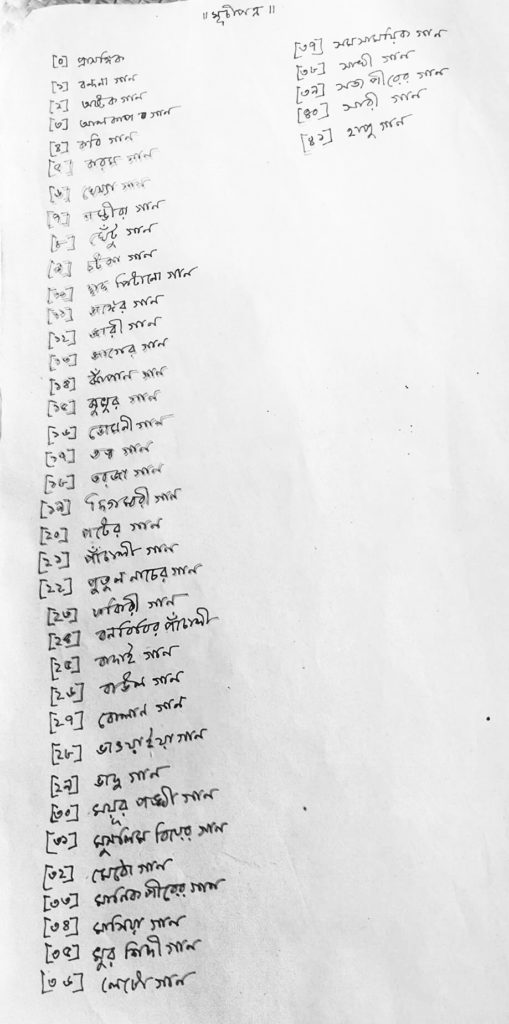 ॥ সূচীপত্র ॥
[০] প্রাসঙ্গিক
[১] বন্দনা গান
[২] অষ্টক গান
[৩] আলকাপ গান
[৪] কবি গান
[৫] কারাম গান
[৬] খেম্যা গান
[৭] গম্ভীরা গান
[৮] ঘেঁটু গান
[৯] চটকা গান
[১০] ছাদ পিটানো গান
[১১] জাগের গান
[১২] জারী গান
[১৩] জাগের গান
[১৪] ঝাঁপান গান
[১৫] ঝুমুর গান
[১৬] তোষলী গান
[১৭] তত্ত্ব গান
[১৮] তরজা গান
[১৯] দিগম্বরী গান
[২০] পটের গান
[২১] পাঁচালী গান
[২২] পুতুল নাচের গান
[২৩] ফকিরী গান
[২৪] বনবিবির পাঁচালী
[২৫] বাদাই গান
[২৬] বাউল গান
[২৭] বোলান গান
[২৮] ভাওয়াইয়া গান
[২৯] ভাদু গান
[৩০] ময়ূর পঙ্খী গান
[৩১] মুসলিম বিয়ের গান
[৩২] মেঠো গান
[৩৩] মানিক পীরের গান
[৩৪] মার্সিয়া গান
[৩৫] মুর্শিদী গান
[৩৬] লেটো গান
[৩৭] সমসাময়িক গান
[৩৮] সাখী গান
[৩৯] সত্য পীরের গান
[৪০] সারী গান
[৪১] হাপু গান